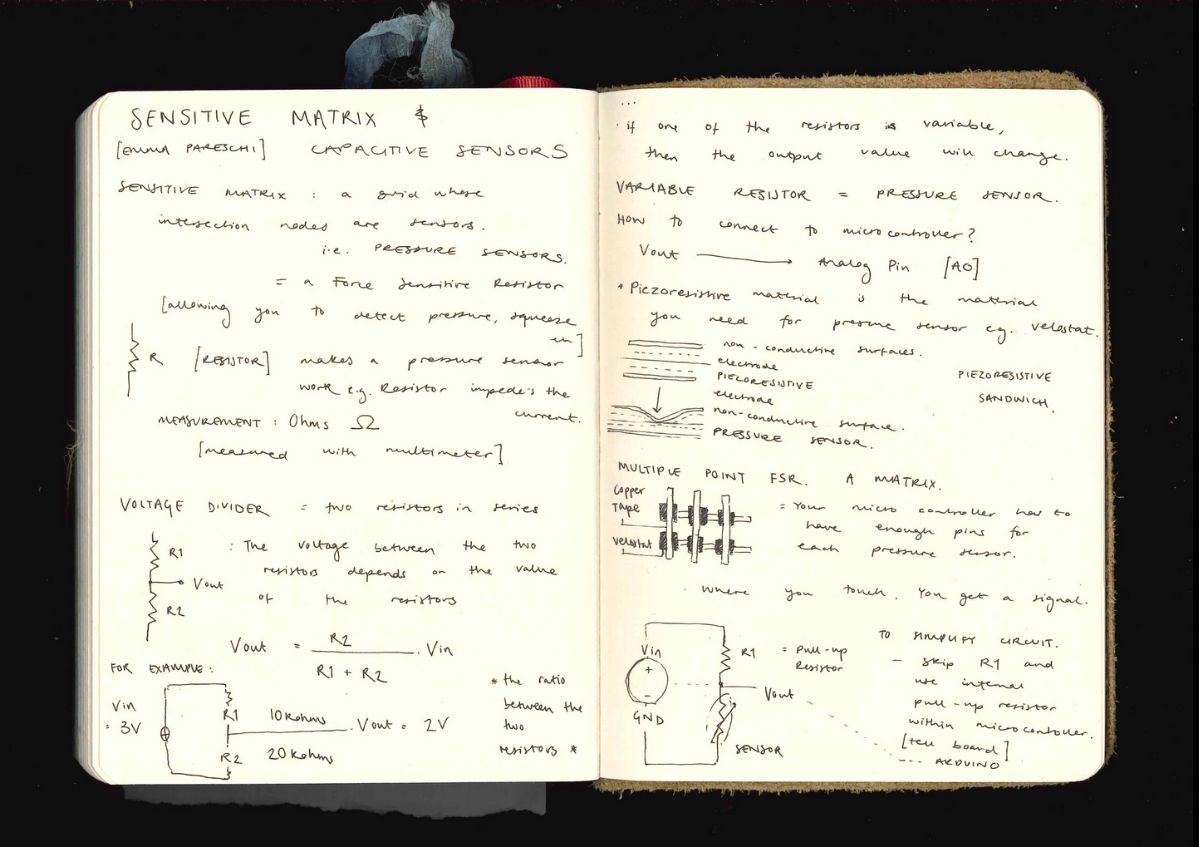 SENSITIVE MATRIX &
[EMMA PARESCHI] CAPACITIVE SENSORS
SENSITIVE MATRIX : a grid where
intersection nodes are sensors.
i.e. PRESSURE SENSORS.
= a Force Sensitive Resistor
[allowing you to detect pressure, squeeze
etc]
R [RESISTOR] makes a pressure sensor
work e.g. Resistor impede's the
current.
MEASUREMENT : Ohms Ω
[measured with multimeter]
VOLTAGE DIVIDER = two resistors in series
R1 : The voltage between the two
resistors depends on the value
Vout
of the resistors
R2
Vout = R2 / R1 + R2 . Vin
FOR EXAMPLE :
Vin
= 3V
R1 10 Kohms
Vout = 2V
R2 20 Kohms
* the ratio
between the
two
resistors *
...
· if one of the resistors is variable,
then the output value will change.
VARIABLE RESISTOR = PRESSURE SENSOR.
HOW TO connect to microcontroller?
Vout Analog Pin [A0]
* Piezoresistive material is the material
you need for pressure sensor eg. velostat.
non-conductive surfaces.
electrode
PIECORESISTIVE
electrode
non-conductive surface.
PRESSURE SENSOR.
PIEZORESISTIVE
SANDWICH.
MULTIPLE POINT FSR. A MATRIX.
Copper
Tape
Velostat
= Your micro controller has to
have enough pins for
each pressure sensor.
where you touch. You get a signal.
Vin
+
-
GND
R1 = Pull-up
Resistor
Vout
SENSOR
TO SIMPLIFY CIRCUIT.
- skip R1 and
use internal
pull-up resistor
within microcontroller.
[tell board]
--- ARDUINO